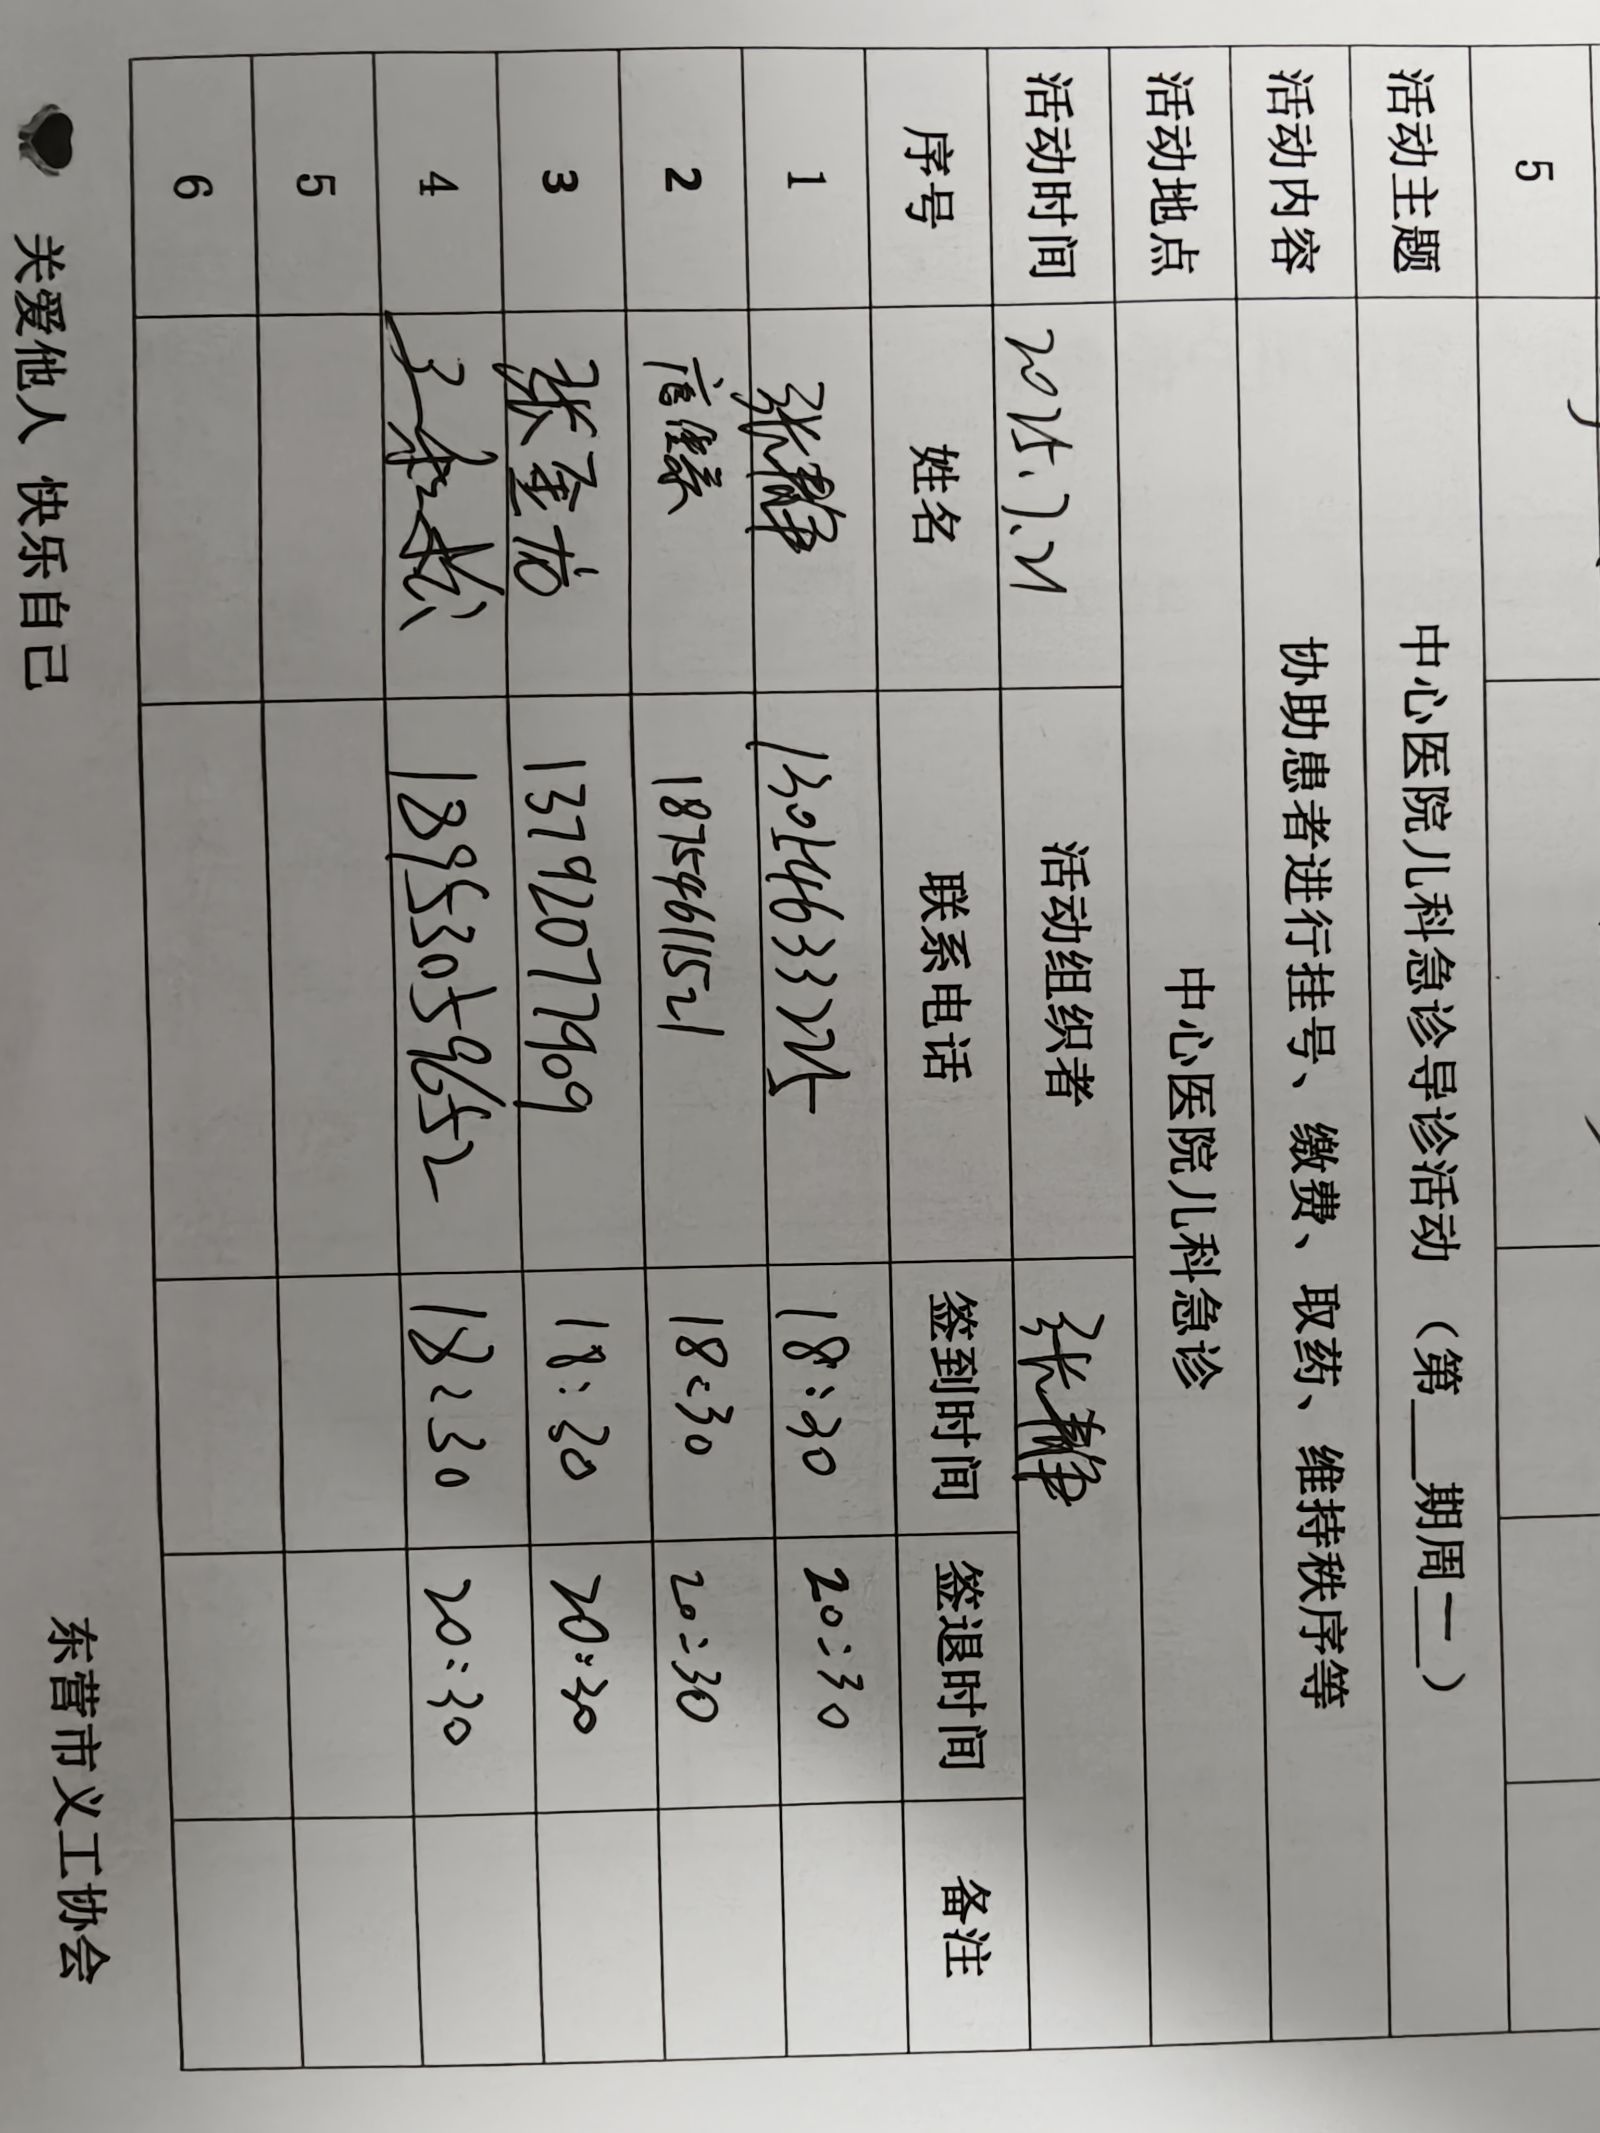 5
活动主题 中心医院儿科急诊导诊活动（第___期周一）
活动内容 协助患者进行挂号、缴费、取药、维持秩序等
活动地点 中心医院儿科急诊
活动时间 2025.7.21 活动组织者 张静
序号 姓名 联系电话 签到时间 签退时间 备注
1 张静 13054633225 18:30 20:30
2 18754611521 18:30 20:30
3 张金 13792077909 18:30 20:30
4 18953059652 18:30 20:30
5
6
关爱他人 快乐自己 东营市义工协会